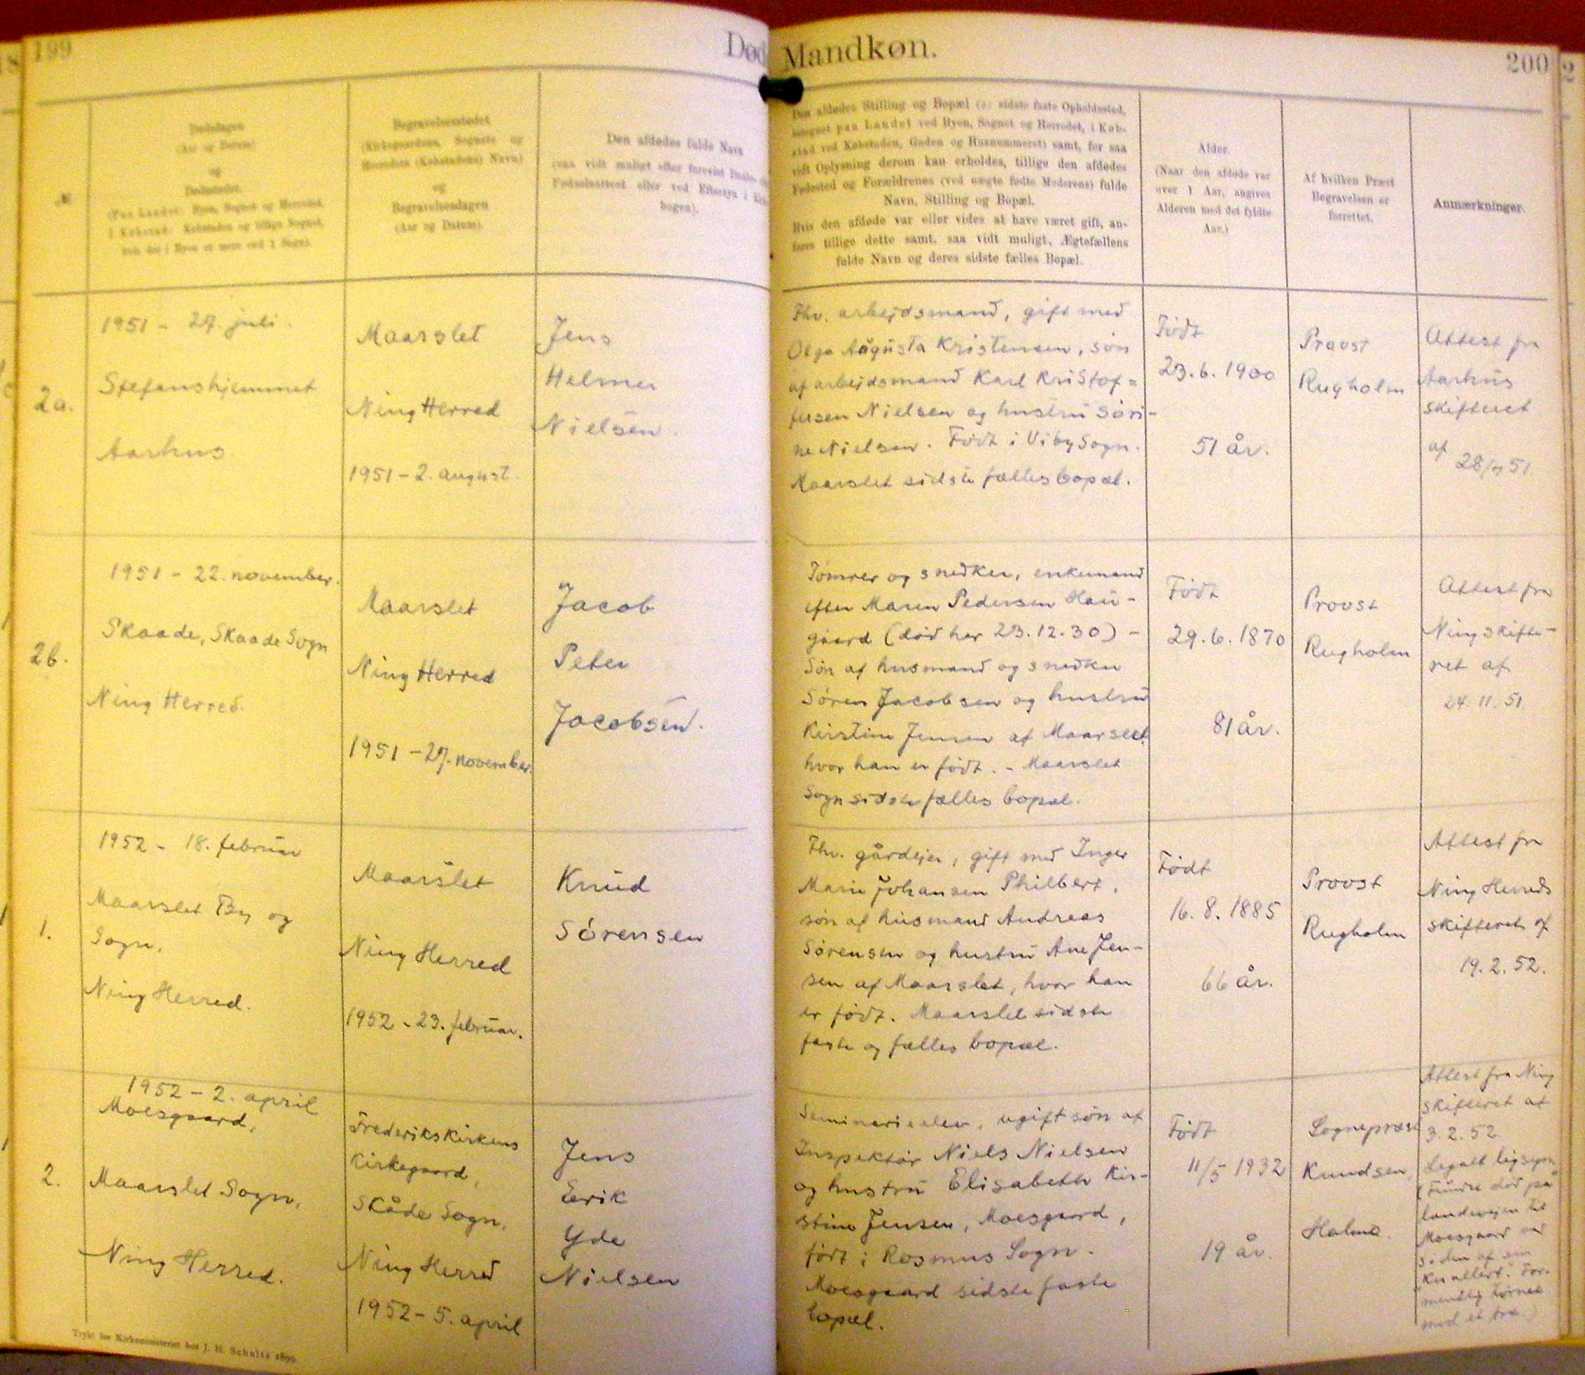 199
Død
Mandkøn.
200
2
Dødsdagen
(Aar og Datum)
og
Dødsstedet.
(Paa Landet: Byen, Sognet og Herredet,
i Købstad: Købstaden og tillige Sognet,
hvis der i Byen er mere end 1 Sogn).
Begravelsesstedet
(Kirkegaardens, Sognets og
Herredets (Købstadens) Navn)
og
Begravelsesdagen
(Aar og Datum).
Den afdødes fulde Navn
(saa vidt muligt efter forevist
Fødselsattest eller ved Eftersyn i
bogen).
Den afdødes Stilling og Bopæl (ɔ: sidste faste Opholdssted,
betegnet paa Landet ved Byen, Sognet og Herredet, i Køb-
stad ved Købstaden, Gaden og Husnummeret) samt, for saa
vidt Oplysning derom kan erholdes, tillige den afdødes
Fødested og Forældrenes (ved uægte fødte Moderens) fulde
Navn, Stilling og Bopæl.
Hvis den afdøde var eller vides at have været gift, an-
føres tillige dette samt, saa vidt muligt, Ægtefællens
fulde Navn og deres sidste fælles Bopæl.
Alder.
(Naar den afdøde var
over 1 Aar, angives
Alderen med det fyldte
Aar.)
Af hvilken Præst
Begravelsen er
forrettet.
Anmærkninger.
2a.
1951 - 27. juli.
Stefanshjemmet
Aarhus
Maarslet
Ning Herred
1951 - 2. august.
Jens
Helmer
Nielsen.
Fhv. arbejdsmand, gift med
Olga Augusta Kristensen, søn
af arbejdsmand Karl Kristof=
fersen Nielsen og hustru Søri-
ne Nielsen. Født i Viby Sogn.
Maarslet sidste fælles bopæl.
Født
23.6.1900
51 år.
Provst
Rugholm
Attest fra
Aarhus
skifteret
af
28/7 51
2b.
1951 - 22. november.
Skaade, Skaade Sogn
Ning Herred.
Maarslet
Ning Herred
1951 - 27. november.
Jacob
Peter
Jacobsen.
Tømrer og snedker, enkemand
efter Maren Pedersen Hau-
gaard (død her 23.12.30) -
Søn af husmand og snedker
Søren Jacobsen og hustru
Kirstine Jensen af Maarslet,
hvor han er født. - Maarslet
Sogn sidste fælles bopæl.
Født
29.6.1870
81 år.
Provst
Rugholm
Attest fra
Ning skifte-
ret af
24.11.51
1.
1952 - 18. februar
Maarslet By og
Sogn,
Ning Herred.
Maarslet
Ning Herred
1952 - 23. februar.
Knud
Sørensen
Fhv. gårdejer, gift med Inger
Marie Johansen Philbert,
søn af husmand Andreas
Sørensen og hustru Ane Jen-
sen af Maarslet, hvor han
er født. Maarslet sidste
faste og fælles bopæl.
Født
16.8.1885
66 år.
Provst
Rugholm
Attest fra
Ning Herreds
skifteret af
19.2.52.
2.
1952 - 2. april
Moesgaard,
Maarslet Sogn,
Ning Herred.
Frederikskirkens
Kirkegaard,
Skåde Sogn,
Ning Herred
1952 - 5. april
Jens
Eerik
Yde
Nielsen
Seminarieelev, ugift søn af
Inspektør Niels Nielsen
og hustru Elisabeth Kir-
stine Jensen, Moesgaard,
født i Rosmus Sogn.
Moesgaard sidste faste
bopæl.
Født
11/5 1932
19 år.
Sognepræst
Knudsen,
Holme.
Attest fra Ning
skifteret af
3.2.52
Legalt ligsyn
(Fundet død på
landevejen til
Moesgaard ved
siden af sin
"Knallert". For-
mentlig tørnet
mod et træ.)
Trykt for Kirkeministeriet hos J. H. Schultz